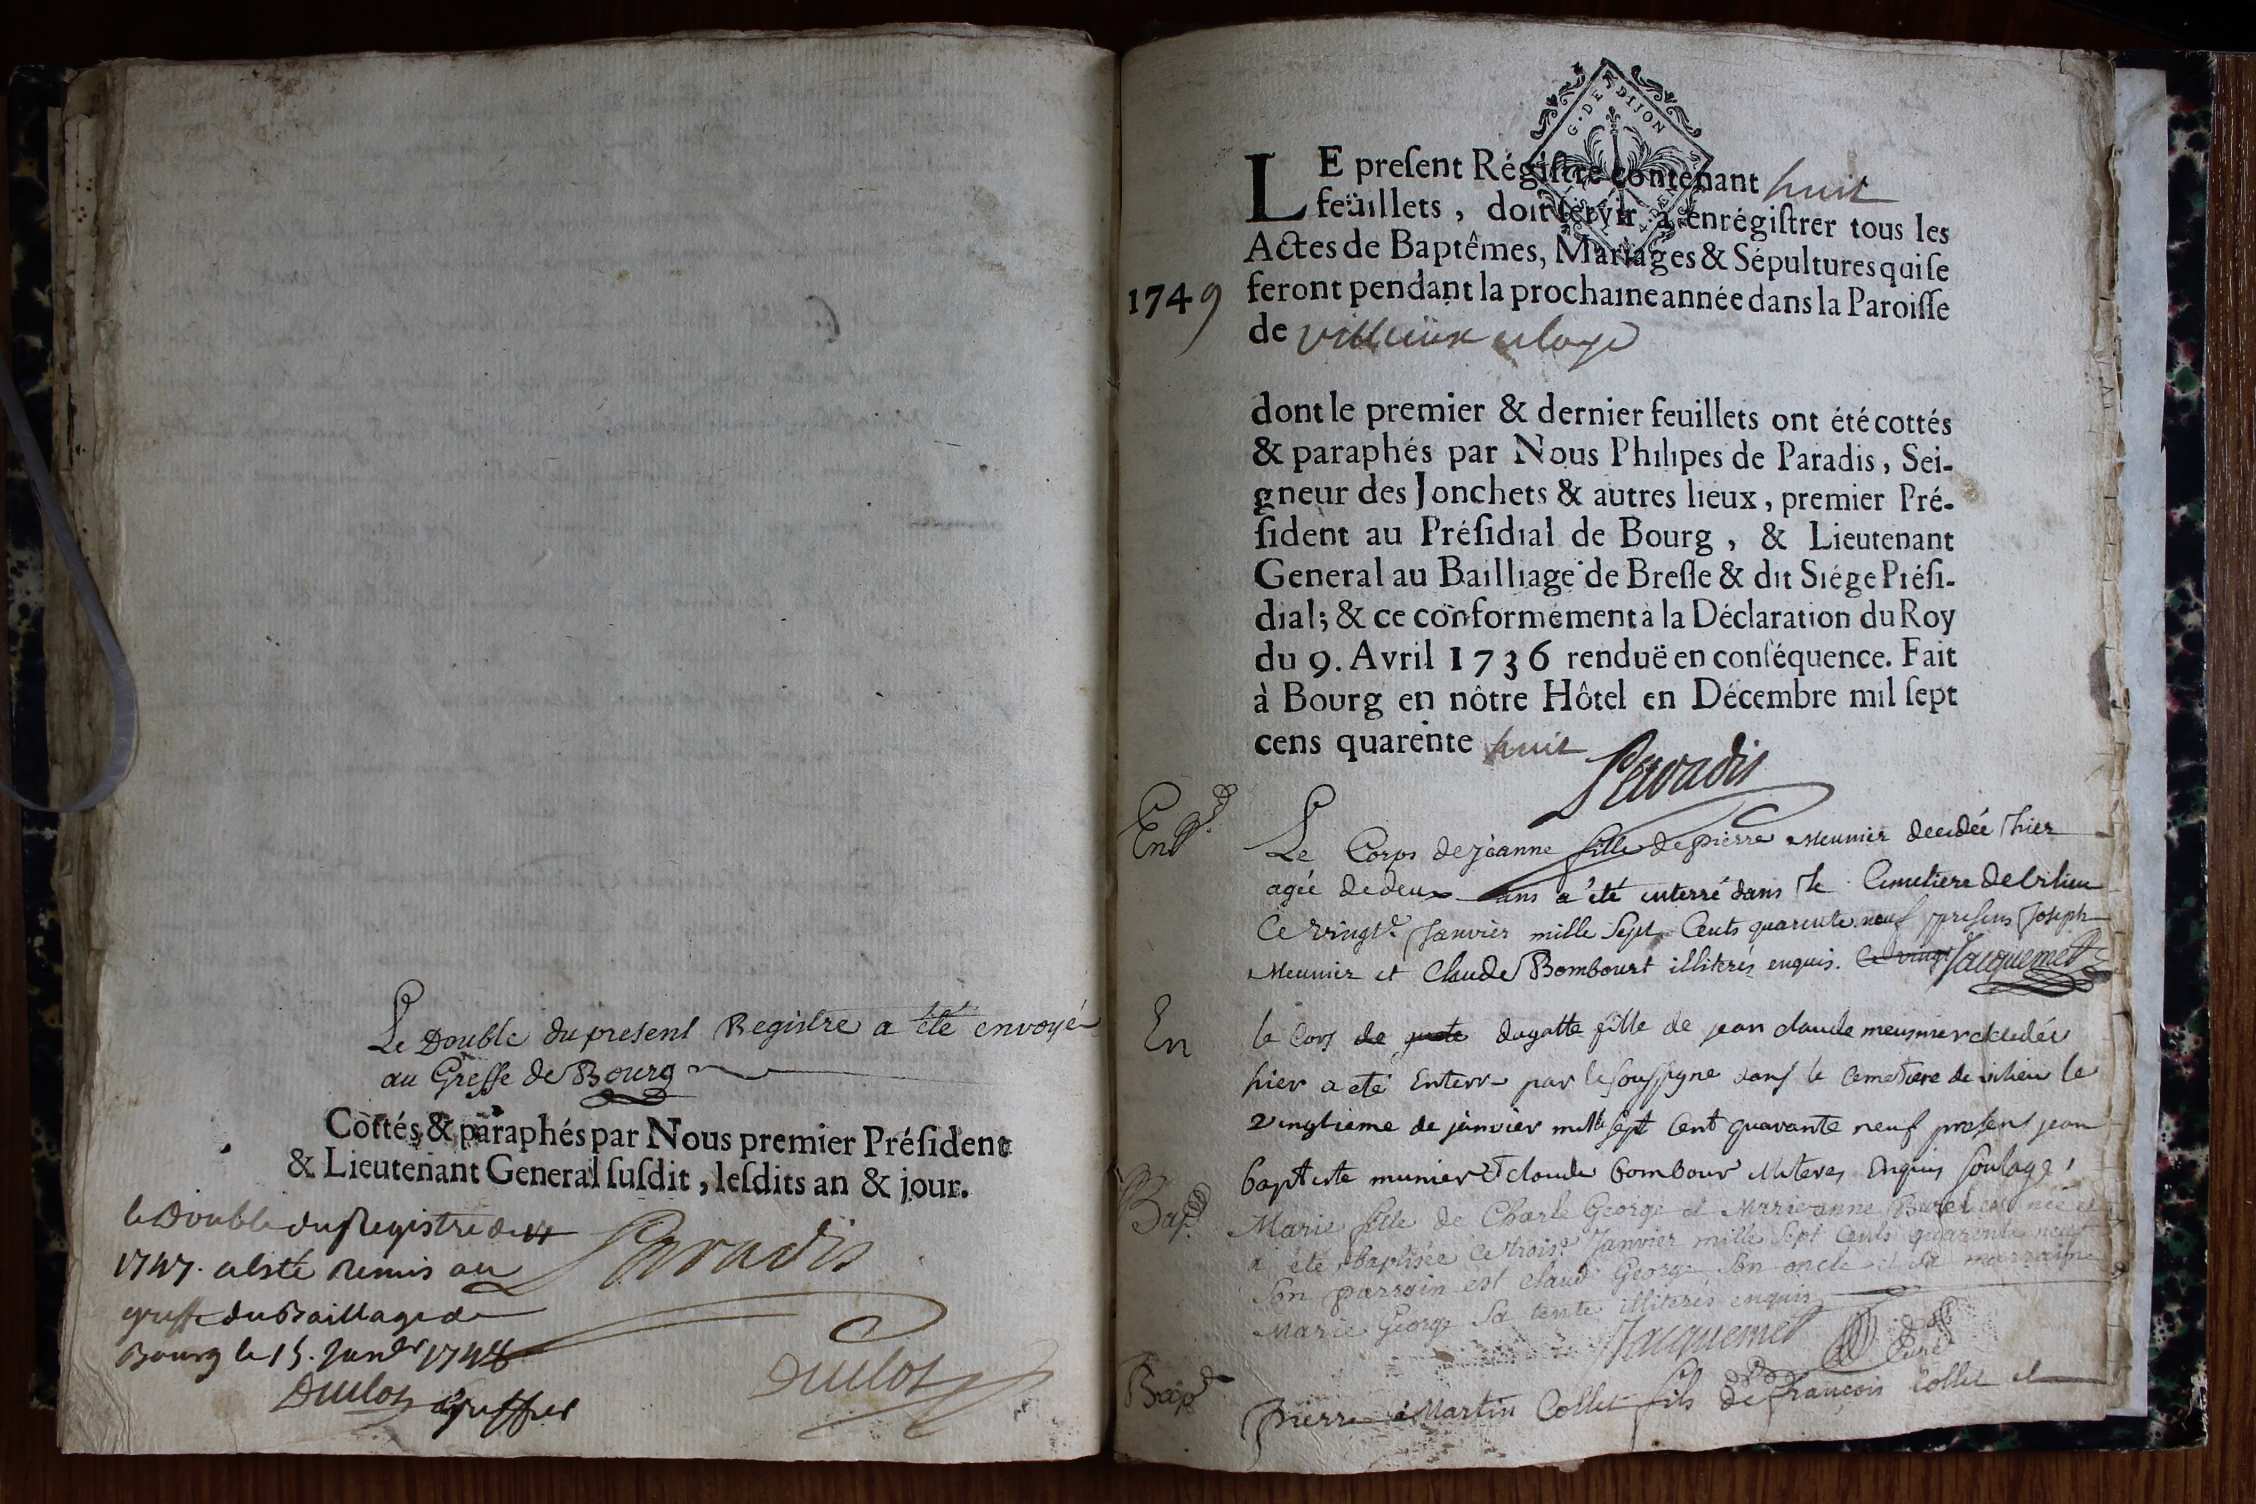 Le Double du present Registre a été envoyé
au Greffe de Bourg
Cottés & paraphés par Nous premier Préſident
& Lieutenant General ſuſdit, leſdits an & jour.
le Double du Registre de
1747. a esté Remis au
greffe du Baillage de
Bourg le 15. Janer 1748
Paradis
Duclos greffier
Duclos
G. DE DIJON
LE preſent Régiſtre contenant huit
feüillets, doit ſervir à enrégiſtrer tous les
Actes de Baptêmes, Mariages & Sépultures qui ſe
1749 feront pendant la prochaine année dans la Paroiſſe
de
dont le premier & dernier feuillets ont été cottés
& paraphés par Nous Philipes de Paradis, Sei-
gneur des Jonchets & autres lieux, premier Pré-
ſident au Préſidial de Bourg, & Lieutenant
General au Bailliage de Breſſe & dit Siége Préſi-
dial; & ce conformément à la Déclaration du Roy
du 9. Avril 1736 renduë en conſéquence. Fait
à Bourg en nôtre Hôtel en Décembre mil ſept
cens quarente huit
Paradis
Le Corps de jeanne fille de pierre Meunier decidée hier
agée de deux ans a été enterré dans le Cimetiere de
Ce vingt.e Janvier mille Sept Cents quarente neuf presens Joseph
Meunier et Claude Bombourt illiterés enquis. Ce vingt Jacquemet
En le Cors de fille de jean claude meusnier decidée
hier a eté Enterr par le soussigne dans le Cemetiere de vilieu le
vingtieme de janvier mille sept Cent quarante neuf presens jean
baptiste munier et claude bombour illiteres Enquis soulage
Bap. Marie fille de Charle George et Marie anne née et
a été Baptisée Ce troise Janvier mille Sept Cents quarente neuf
Son parrain est claud George Son oncle et Sa marraine
Marie George Sa tente illiterés enquis
Jacquemet Curé
Bap pierre Martin Collet fils de françois Collet et